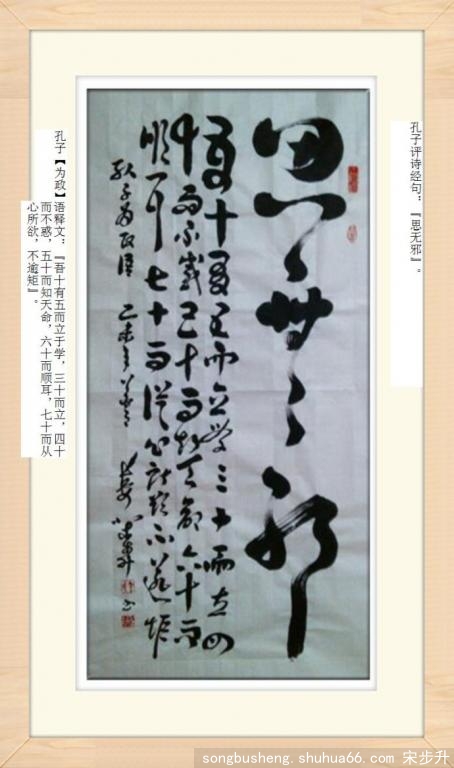 孔子评诗经句：『思无邪』。
思無邪
吾十有五而立学三十而立四
十而不惑五十而知天命六十而
順耳七十而從心所欲不逾矩
孔子为政语 乙未年
孔子【为政】语释文：『吾十有五而立于学，三十而立，四十
而不惑，五十而知天命，六十而顺耳，七十而从
心所欲，不逾矩』。
songbusheng. shuhua66. com 宋步升